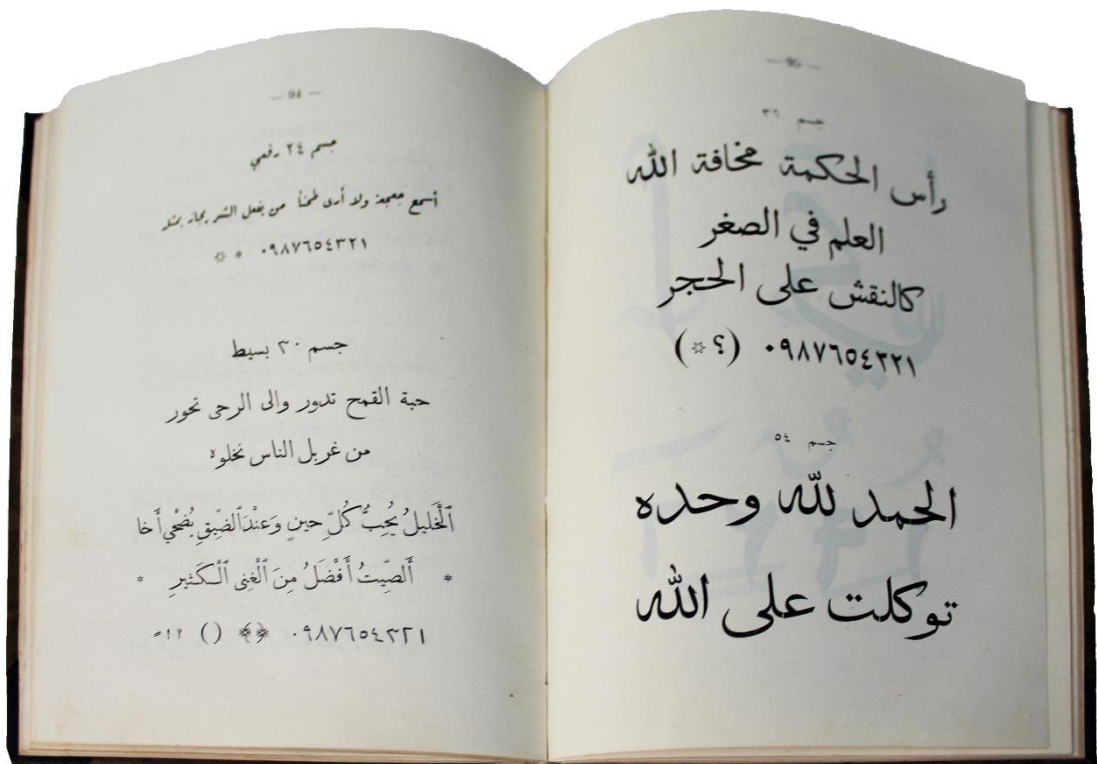 — 94 —
جسم ٢٤ رقعي
أسمع جعجعة ولا أرى طحناً من يفعل الشر يجاز بمثله
٠٩٨٧٦٥٤٣٢١ * *
جسم ٣٠ بسيط
حبة القمح تدور والى الرحى تحور
من غربل الناس نخلوه
اَلْخَلِيلُ يُحِبُّ كُلَّ حينٍ وَعِنْدَ ٱلضِّيقِ يُضْحي أَخا
* أَلصِّيتُ أَفْضَلُ مِنَ ٱلْغِنى ٱلْكَثيرِ *
٠٩٨٧٦٥٤٣٢١ () ؟!
— 95 —
جسم ٣٦
رأس الحكمة مخافة الله
العلم في الصغر
كالنقش على الحجر
٠٩٨٧٦٥٤٣٢١ (؟ *)
جسم ٥٤
الحمد لله وحده
توكلت على الله